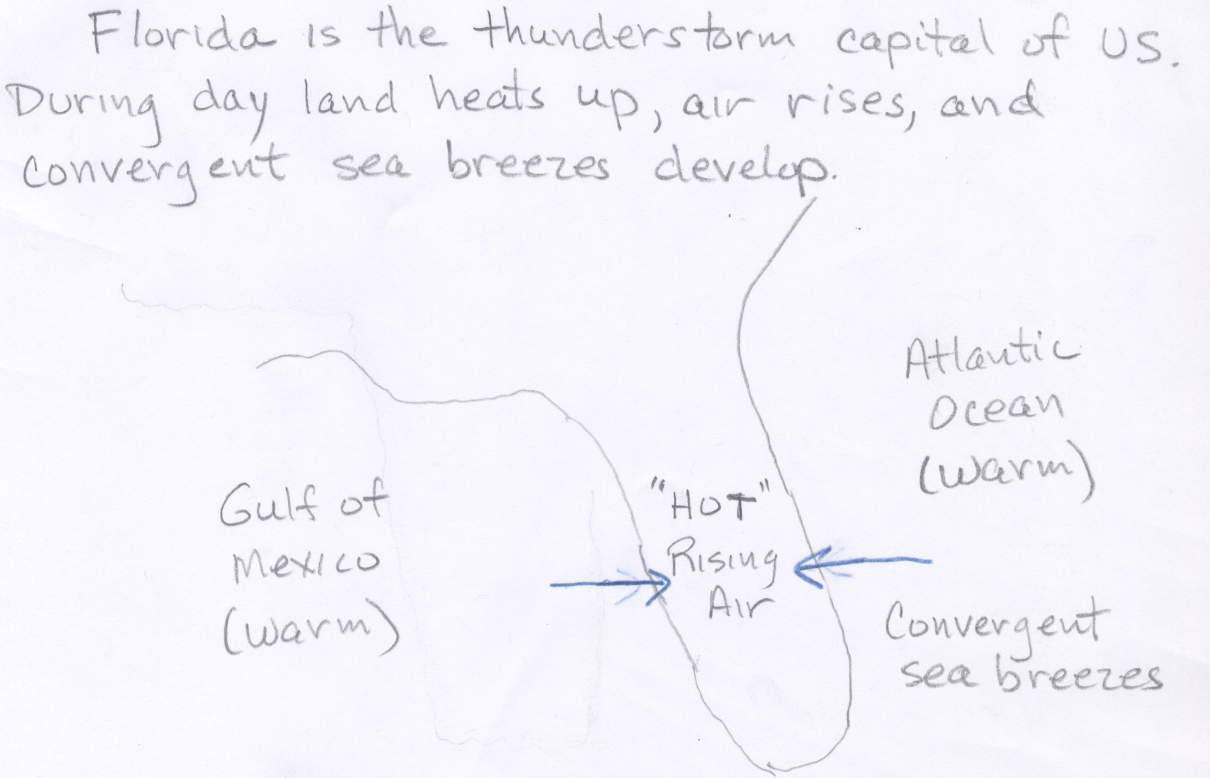 Florida is the thunderstorm capital of US.
During day land heats up, air rises, and
convergent sea breezes develop.
Atlantic
Ocean
(warm)
Gulf of
Mexico
(warm)
"HOT"
Rising
Air
Convergent
sea breezes